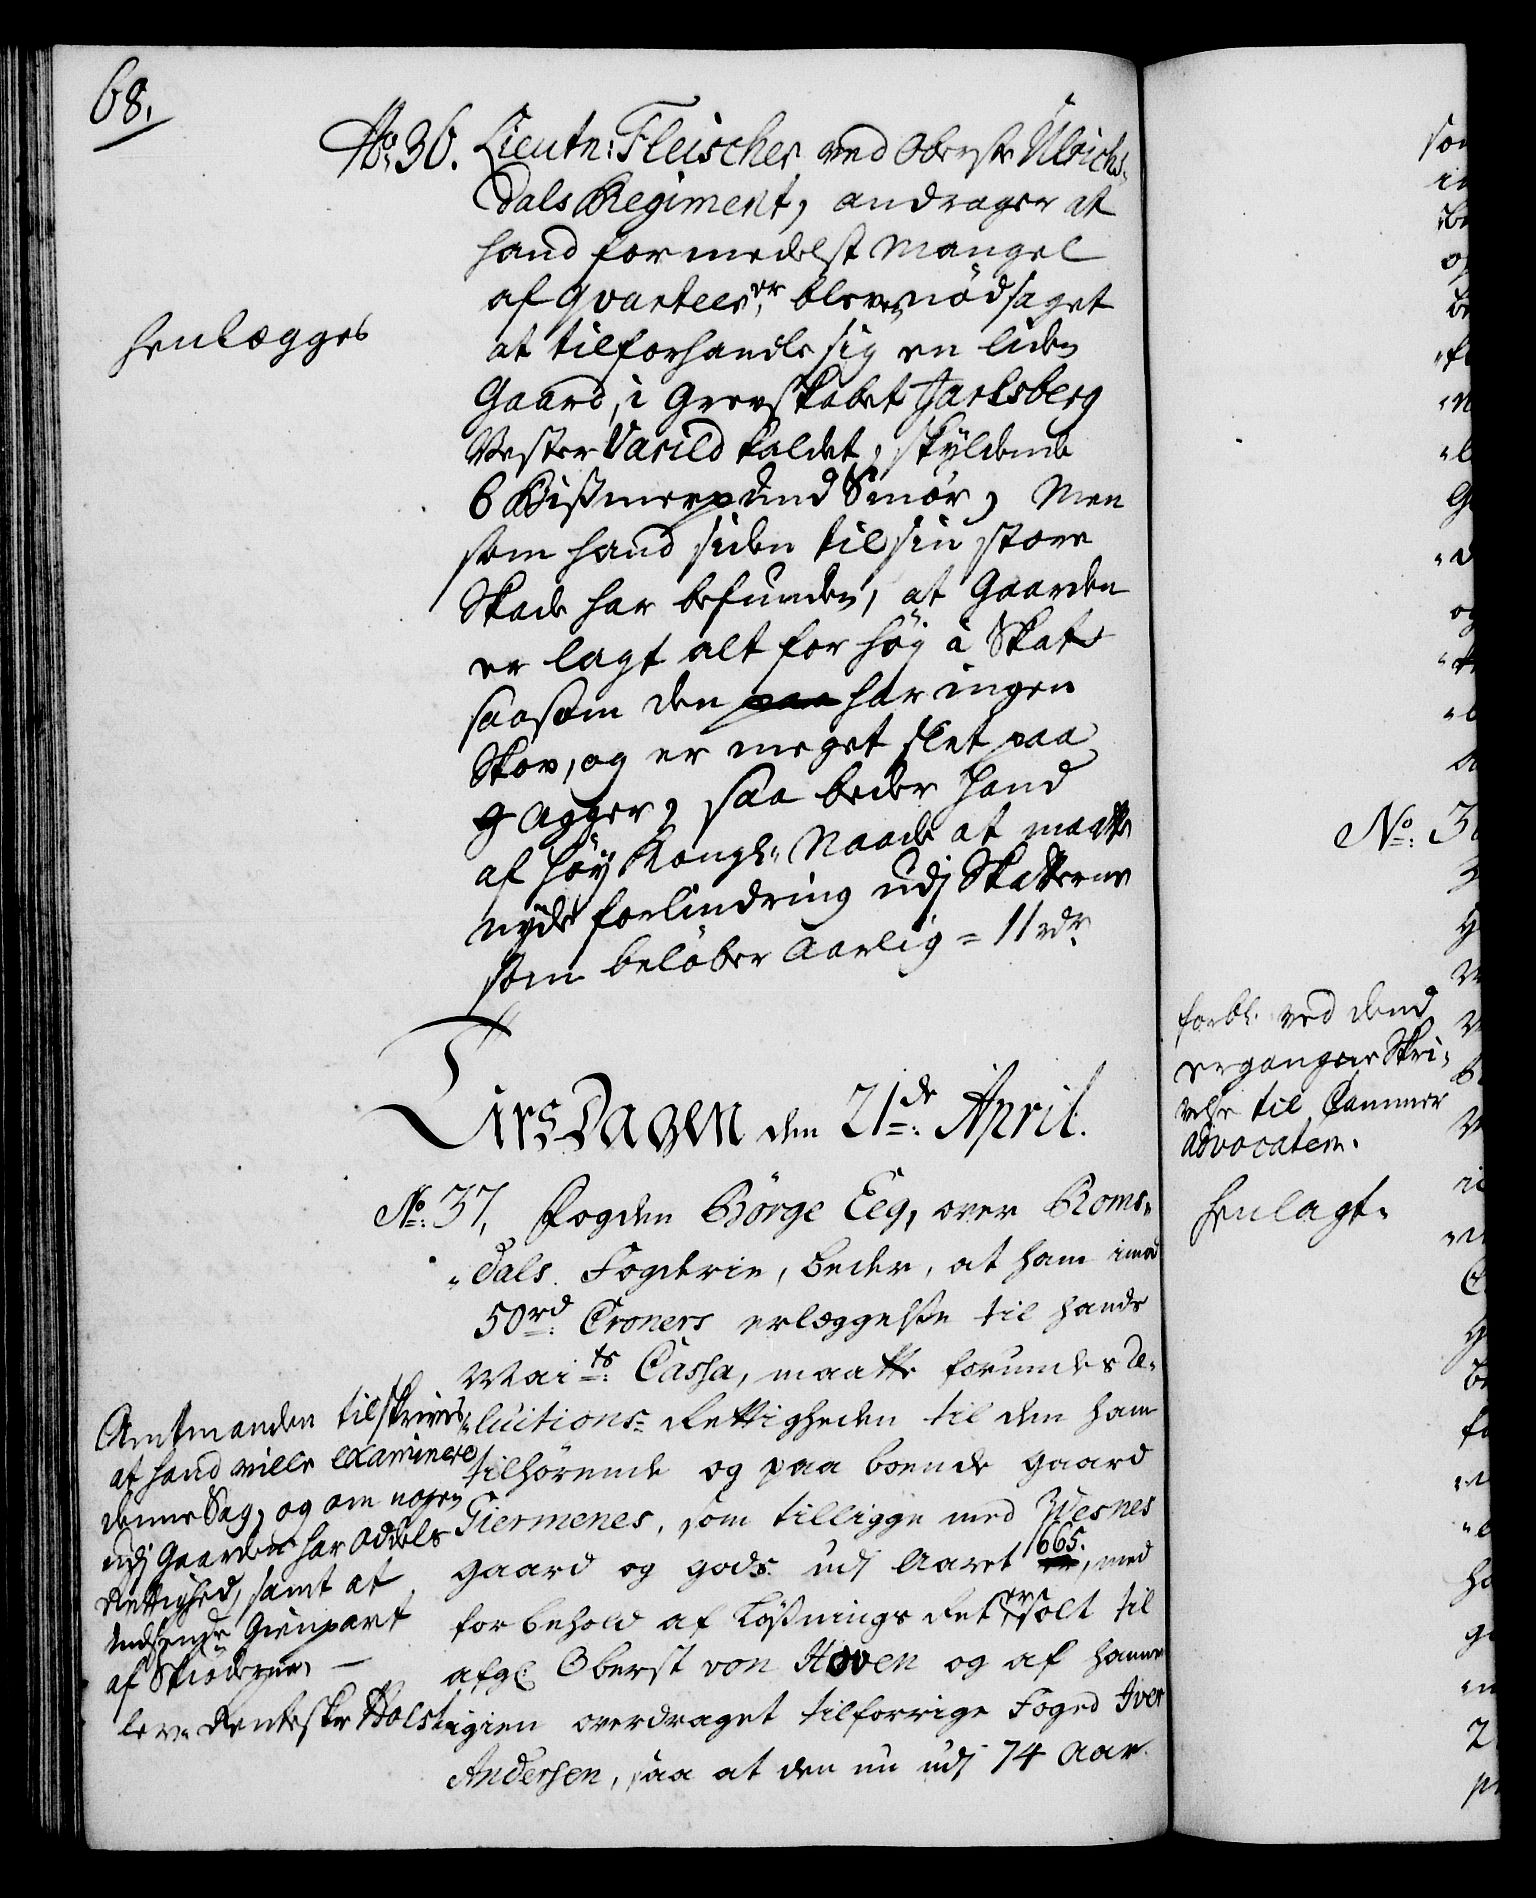 68.
No: 36. Lieutn: Fleischer ved Oberste Ulrichs-
dals Regiment, andrager at
hand formedelst Mangel
af qvarteer, er bleven nödsaget
at tilforhandle sig en liden
Gaard, i Grevskabet Jarlsberg
Vester Varild kaldet, skyldende
6 Bißmerpund Smör, Men
som hand siden til sin store
Skade har befunden, at Gaarden
er lagt alt for höy à Skatt
saasom den har ingen
Skov, og er meget slet paa
Agger, saa beder hand
af höy Kongl: Naade at maatte
nyde forlindring udj Skatterne
som belöber Aarlig = 11 rdr.
henlægges
Tirsdagen den 21de: April.
No: 37. Fogden Börge Eeg, over Roms-
dals Fogderie, beder, at ham imod
50rd: Croners erlæggelse til hands
Mai:ts Cassa, maatte forundes Re-
luitions- Rettigheden til den ham
tilhörende og paa boende gaard
Giermenes, som tilligge med Wesnes
gaard og gods udj Aaret 1665. med
forbehold af Lösnings Ret er solt til
afg: Oberst von Hoven og af hamm
igien overdraget til forrige Foged Iver
Andersen, saa at den nu udj 74 Aar
Amtmanden tilskrives
at hand ville examinere
denne Sag, og om nogen
udj Gaarden har Oddels
Rettighed, samt at
indsende Gienpart
af Skiöderne,
lev: Renteskr Holst
forbl. ved dend
ergangne Skri-
velse til Cammer
advocaten.
henlagt.
No: 3